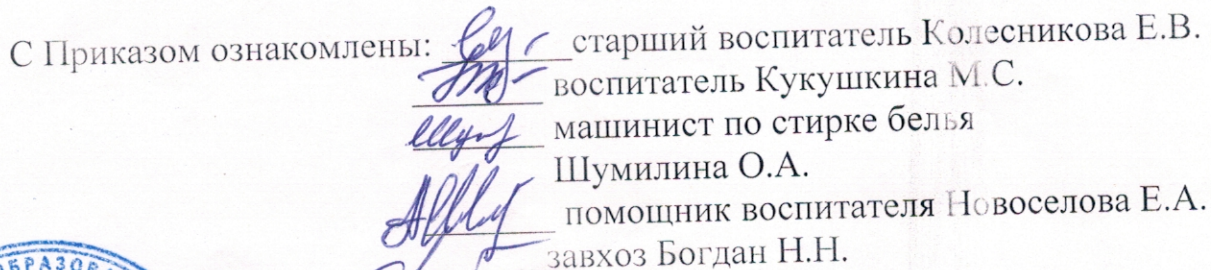 С Приказом ознакомлены: старший воспитатель Колесникова Е.В.
воспитатель Кукушкина М.С.
машинист по стирке белья
Шумилина О.А.
помощник воспитателя Новоселова Е.А.
завхоз Богдан Н.Н.